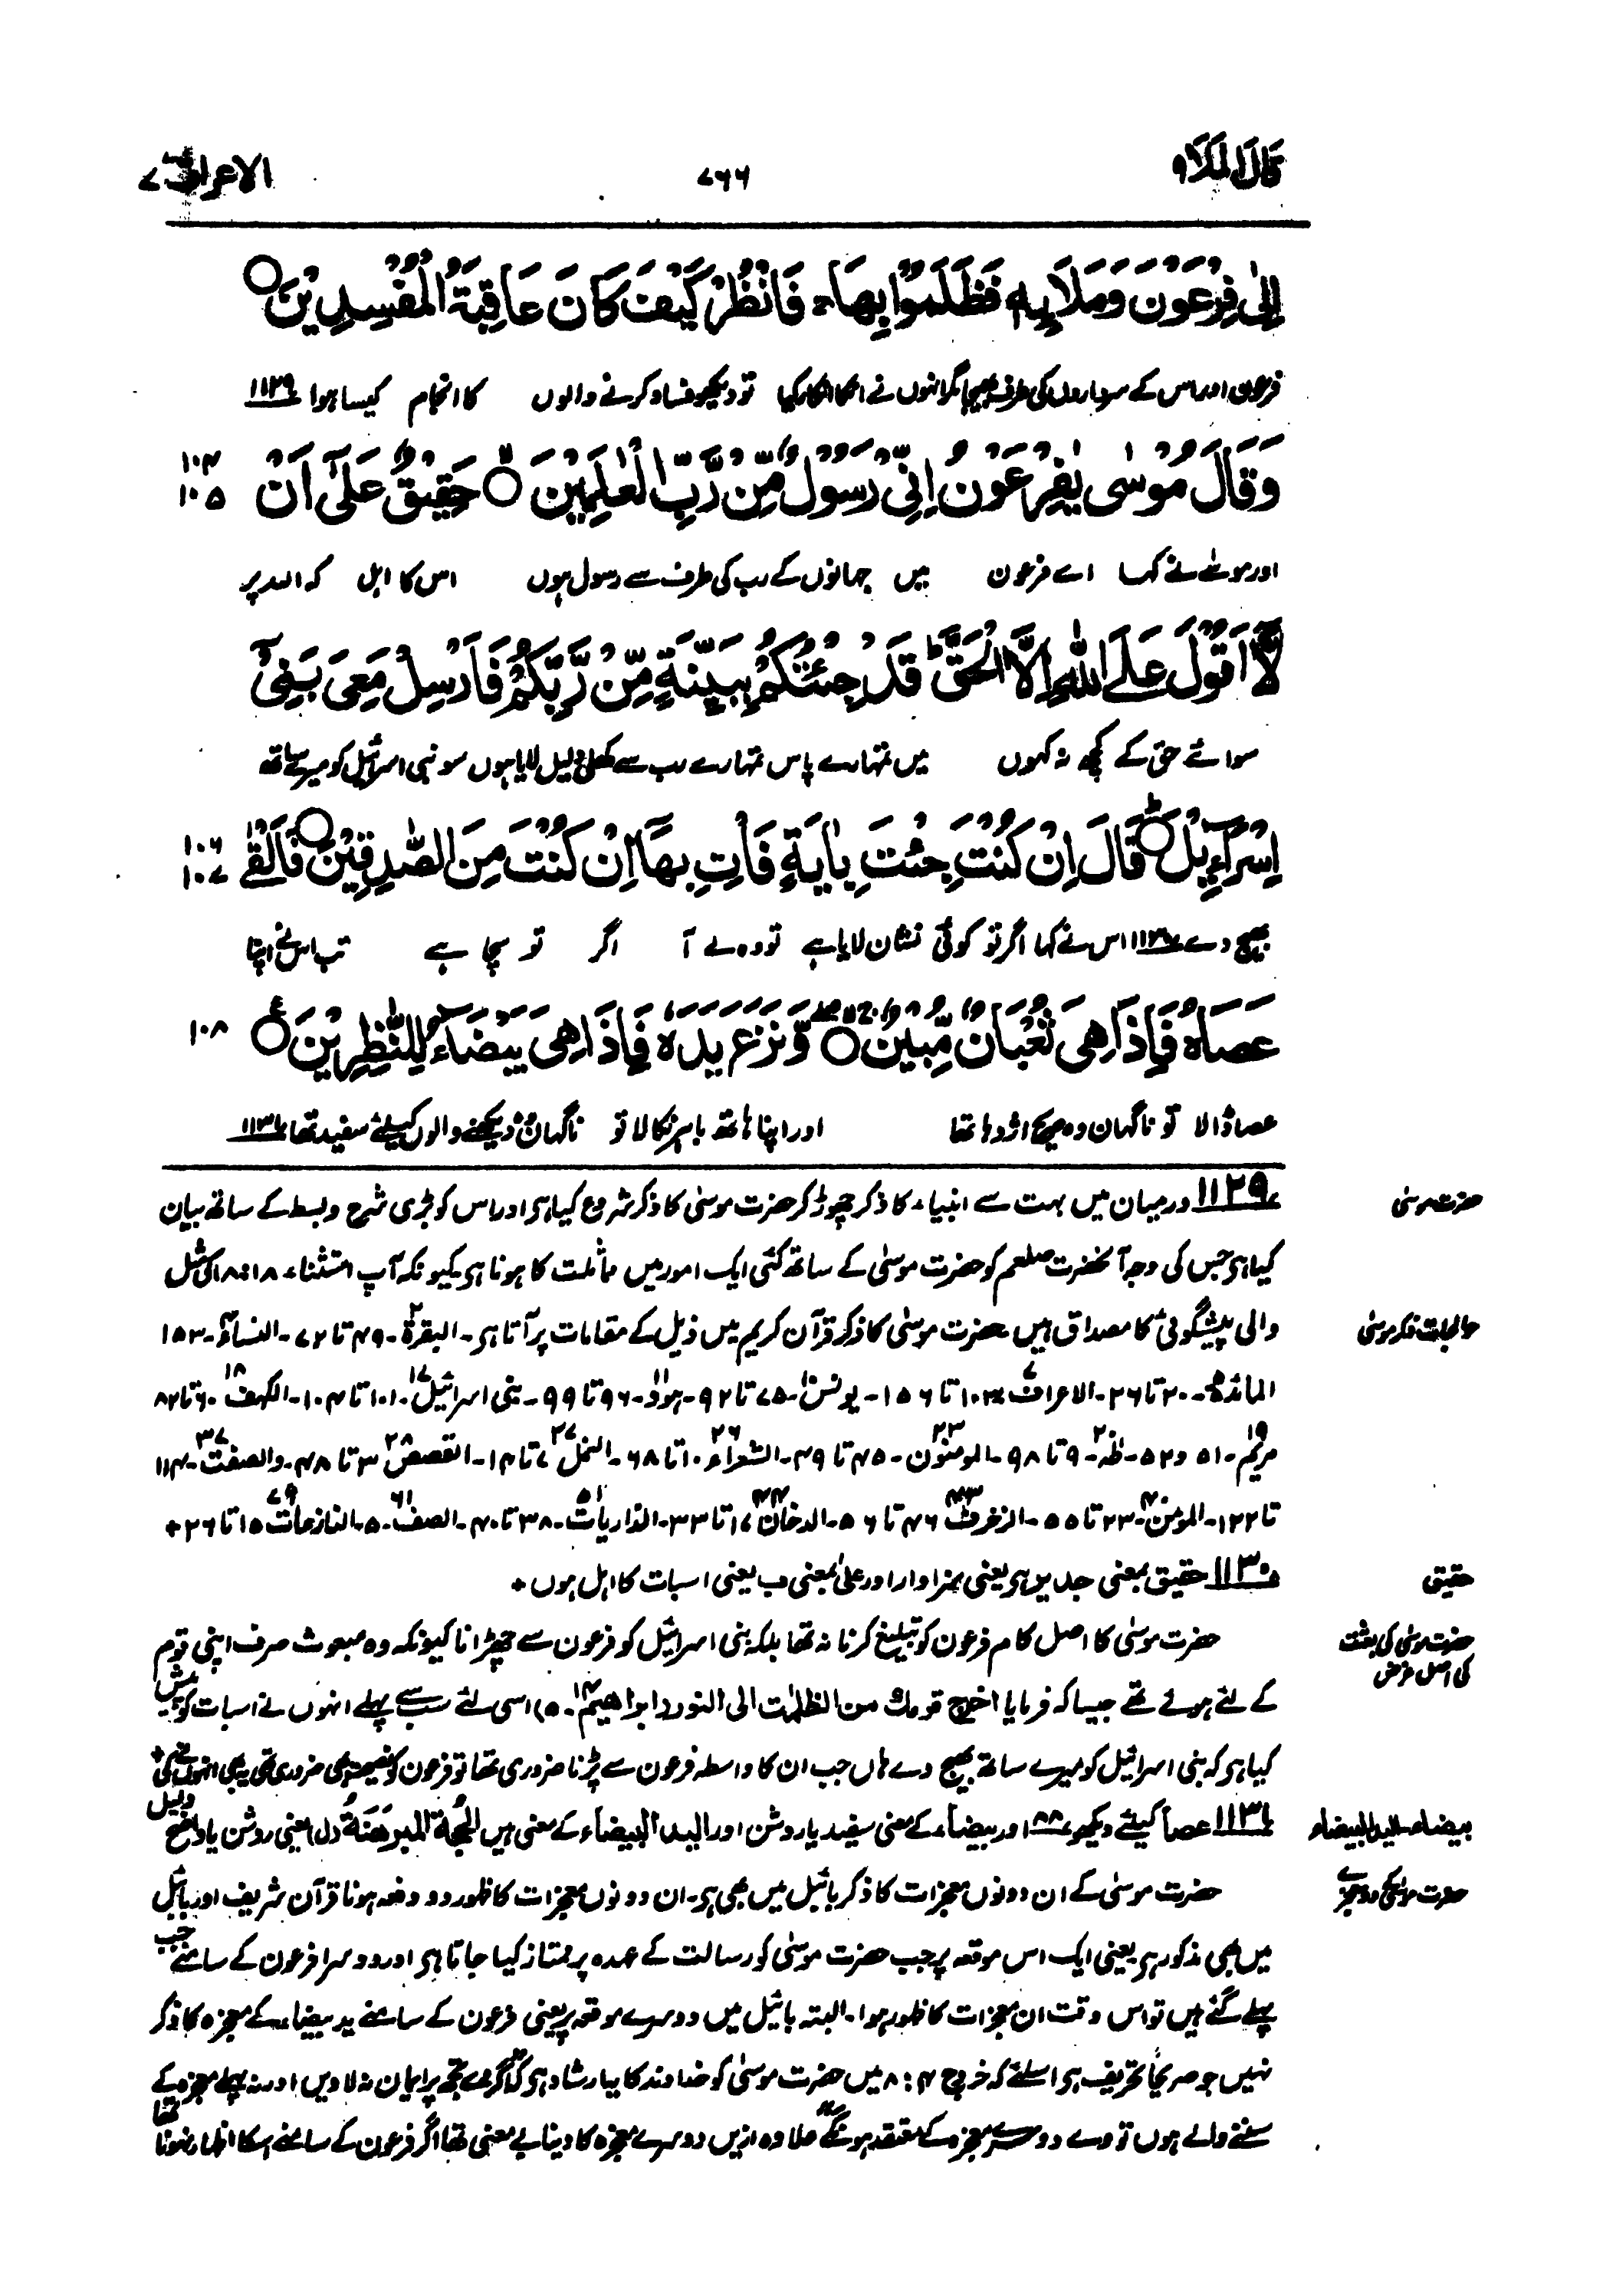 قال الملا ۹
۷۶۶
الاعراف ۷
إِلىٰ فِرْعَوْنَ وَمَلَا۟ئِهٖ فَظَلَمُوْا بِهَا ۚ فَانْظُرْ كَيْفَ كَانَ عَاقِبَةُ الْمُفْسِدِيْنَ ○
فرعون اور اس کے سرداروں کی طرف بھیجا مگر انہوں نے انکا انکار کیا تو دیکھو فساد کرنے والوں کا انجام کیسا ہوا ۱۱۲۹
وَقَالَ مُوْسٰى يٰفِرْعَوْنُ اِنِّيْ رَسُوْلٌ مِّنْ رَّبِّ الْعٰلَمِيْنَ ○ حَقِيْقٌ عَلٰٓى اَنْ
۱۰۴
۱۰۵
اور موسٰے نے کہا اے فرعون میں جہانوں کے رب کی طرف سے رسول ہوں اس کا اہل کہ اللہ پر
لَّآ اَقُوْلَ عَلَى اللّٰهِ اِلَّا الْحَقَّ ؕ قَدْ جِئْتُكُمْ بِبَيِّنَةٍ مِّنْ رَّبِّكُمْ فَاَرْسِلْ مَعِيَ بَنِيْٓ
سوائے حق کے کچھ نہ کہوں میں تمہارے پاس تمہارے رب سے کھلی دلیل لایا ہوں سو بنی اسرائیل کو میرے ساتھ
اِسْرَآءِيْلَ ○ قَالَ اِنْ كُنْتَ جِئْتَ بِاٰيَةٍ فَاْتِ بِهَآ اِنْ كُنْتَ مِنَ الصّٰدِقِيْنَ ○ فَاَلْقٰى
۱۰۶
۱۰۷
بھیج دے ۱۱۳۰ اس نے کہا اگر تو کوئی نشان لایا ہے تو وہ لے آ اگر تو سچا ہے تب اس نے اپنا
عَصَاهُ فَاِذَا هِيَ ثُعْبَانٌ مُّبِيْنٌ ○ وَّنَزَعَ يَدَهٗ فَاِذَا هِيَ بَيْضَآءُ لِلنّٰظِرِيْنَ ○
۱۰۸
عصا ڈالا تو ناگہاں وہ صریح اژدہا تھا اور اپنا ہاتھ باہر نکالا تو ناگہاں وہ دیکھنے والوں کیلئے سفید تھا ۱۱۳۱
۱۱۲۹ درمیان میں بہت سے انبیاء کا ذکر چھوڑ کر حضرت موسیٰ کا ذکر شروع کیا ہی اور اس کو بڑی شرح و بسط کے ساتھ بیان
حضرت موسیٰ
کیا ہی جس کی وجہ آنحضرت صلعم کو حضرت موسیٰ کے ساتھ کئی ایک امور میں مماثلت کا ہونا ہی کیونکہ آپ استثناء ۱۸:۱۸ کی مثیل
والی پیشگوئی کا مصداق ہیں حضرت موسیٰ کا ذکر قرآن کریم میں ذیل کے مقامات پر آتا ہی۔ البقرۃ ۲۔ ۴۹ تا ۷۲۔ النساء ۴۔ ۱۵۳
حوالجات ذکر موسیٰ
المائدہ ۵۔ ۲۰ تا ۲۶۔ الاعراف ۷۔ ۱۰۳ تا ۱۵۶۔ یونس ۱۰۔ ۷۵ تا ۹۲۔ ہود ۱۱۔ ۹۶ تا ۹۹۔ بنی اسرائیل ۱۷۔ ۱۰۱ تا ۱۰۴۔ الکہف ۱۸۔ ۶۰ تا ۸۲
مریم ۱۹۔ ۵۱ و ۵۲۔ طٰہٰ ۲۰۔ ۹ تا ۹۸۔ المومنون ۲۳۔ ۴۵ تا ۴۹۔ الشعراء ۲۶۔ ۱۰ تا ۶۸۔ النمل ۲۷۔ ۷ تا ۱۴۔ القصص ۲۸۔ ۳ تا ۴۸۔ والصفت ۳۷۔ ۱۱۴
تا ۱۲۲۔ المومن ۴۰۔ ۲۳ تا ۵۵۔ الزخرف ۴۳۔ ۴۶ تا ۵۶۔ الدخان ۴۴۔ ۱۷ تا ۳۳۔ الذاریات ۵۱۔ ۳۸ تا ۴۰۔ الصف ۶۱۔ ۵۔ النازعات ۷۹۔ ۱۵ تا ۲۶ +
۱۱۳۰ حقیق بمعنی جدیر ہی یعنی سزاوار اور علیٰ بمعنی ب یعنی اس بات کا اہل ہوں +
حقیق
حضرت موسیٰ کا اصل کام فرعون کو تبلیغ کرنا نہ تھا بلکہ بنی اسرائیل کو فرعون سے چھڑانا کیونکہ وہ مبعوث صرف اپنی قوم
حضرت موسیٰ کی بعثت
کی اصل غرض
کے لئے ہوئے تھے جیسا کہ فرمایا اخرج قومك من الظلمٰت الی النور (ابراھیم ۱۴۔ ۵) اسی لئے سب سے پہلے انہوں نے اس بات کو پیش
کیا ہی کہ بنی اسرائیل کو میرے ساتھ بھیج دے ہاں جب ان کا واسطہ فرعون سے پڑنا ضروری تھا تو فرعون کو نصیحت بھی ضروری تھی یہ بھی انہوں نے کی +
۱۱۳۱ عصا کیلئے دیکھو ۸۸ اور بیضاء کے معنی سفید یا روشن اور الید البیضاء کے معنی ہیں الحُجَّۃُ المُبَرْھَنَۃُ (ل) یعنی روشن یا واضح دلیل
بیضاء۔ الید البیضاء
حضرت موسیٰ کے ان دونوں معجزات کا ذکر بائیبل میں بھی ہی۔ ان دونوں معجزات کا ظہور دو دفعہ ہونا قرآن شریف اور بائیبل
حضرت موسیٰ کے دو معجزے
میں بھی مذکور ہی یعنی ایک اس موقعہ پر جب حضرت موسیٰ کو رسالت کے عہدہ پر ممتاز کیا جاتا ہی اور دوسرا فرعون کے سامنے جب
پہلے گئے ہیں تو اس وقت ان معجزات کا ظہور ہوا۔ البتہ بائیبل میں دوسرے موقعہ پر یعنی فرعون کے سامنے ید بیضاء کے معجزہ کا ذکر
نہیں جو صریحاً تحریف ہی اسلئے کہ خروج ۴ : ۸ میں حضرت موسیٰ کو خداوند کا یہ ارشاد ہی کہ اگر وے تجھ پر ایمان نہ لاویں اور نہ پہلے معجزہ کے
سننے والے ہوں تو وے دوسرے معجزہ کے معتقد ہونگے علاوہ ازیں دوسرے معجزہ کا دینا بے معنی تھا اگر فرعون کے سامنے اسکا اظہار نہ ہونا تھا